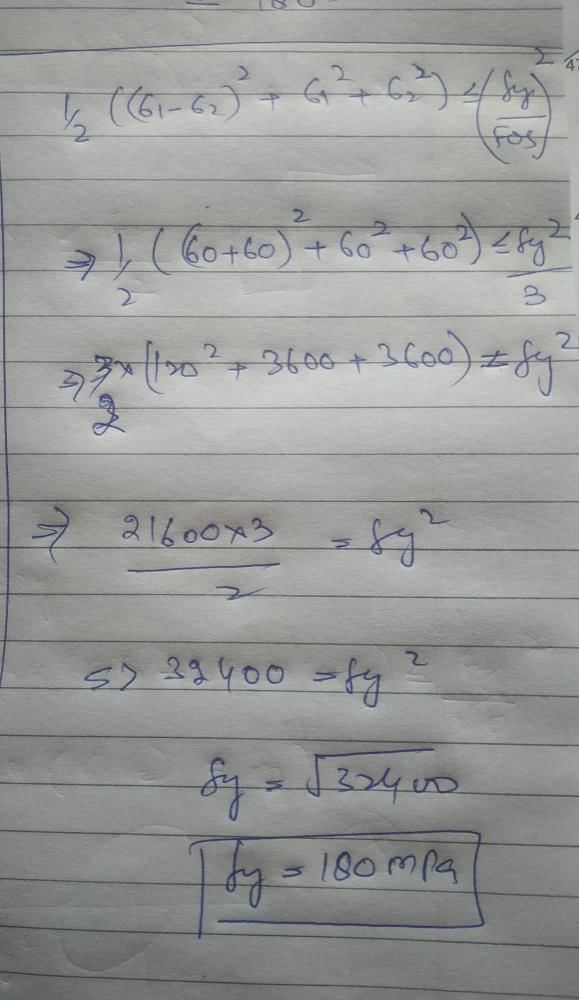 1/2 ((σ1-σ2)² + σ1² + σ2²) ≤ (fy/FOS)²
⇒ 1/2 ((60+60)² + 60² + 60²) ≤ fy²/3
⇒ 3/2 × (120² + 3600 + 3600) = fy²
⇒ 21600×3/2 = fy²
⇒ 32400 = fy²
fy = √32400
fy = 180 MPa